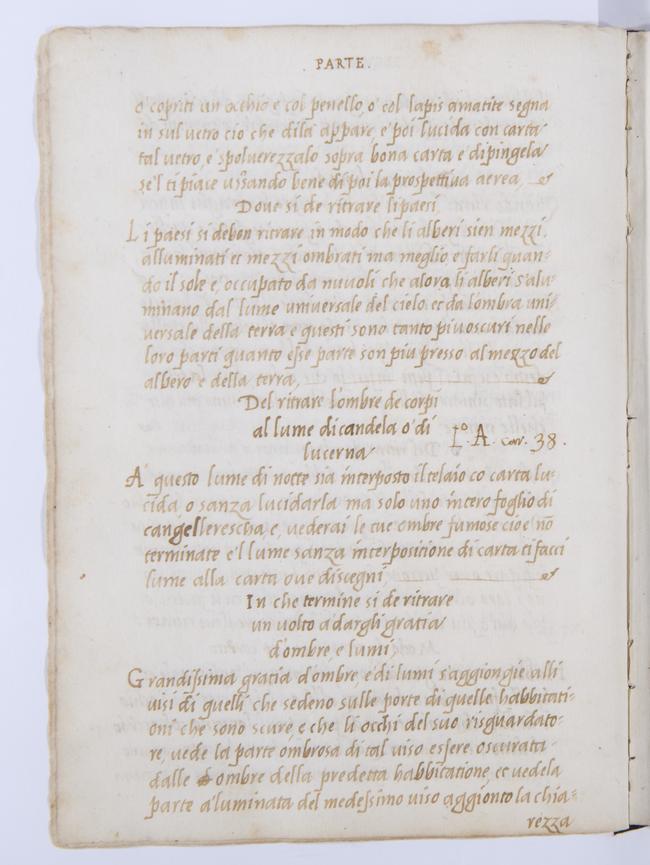 PARTE.
o' copriti un occhio e col penello, o' col lapis amatite segna
in sul vetro cio che dila appare, e poi lucida con carta
tal vetro, e spoluerezzalo sopra bona carta e dipingela
se'l ti piace ussando bene di poi la prospettiua aerea,
Doue si de ritrare li paesi,
Li paesi si debon ritrare in modo che li alberi sien mezzi,
alluminati et mezzi ombrati ma meglio e farli quan-
do il sole e, occupato da nuuoli che alora li alberi s'alu-
minano dal lume universale del cielo et da lombra uni-
versale della terra e questi sono tanto piu oscuri nelle
loro parti quanto esse parte son piu presso al mezzo del
albero e della terra,
Del ritrare l'ombre de corpi
al lume di candela o' di
lucerna
Lº. A. car. 38.
A' questo lume di notte sia interposto il telaio co carta lu-
cida, o sanza lucidarla ma solo uno intero foglio di
cangellerescha, e, vederai le tue ombre fumose cioe nō
terminate e'l lume sanza interpositione di carta ti facci
lume alla carta oue disegni
In che termine si de ritrare
un volto a' dargli gratia
d'ombre, e lumi,
Grandissima gratia d'ombre, e di lumi s'aggiongie alli
visi di quelli che sedeno sulle porte di quelle habbitati-
oni che sono scure, e che li occhi del suo risguardato-
re, vede la parte ombrosa di tal viso essere oscurata
dalle ombre della predetta habbitatione, et vedela
parte a'luminata del medessimo viso aggionto la chia-
rezza